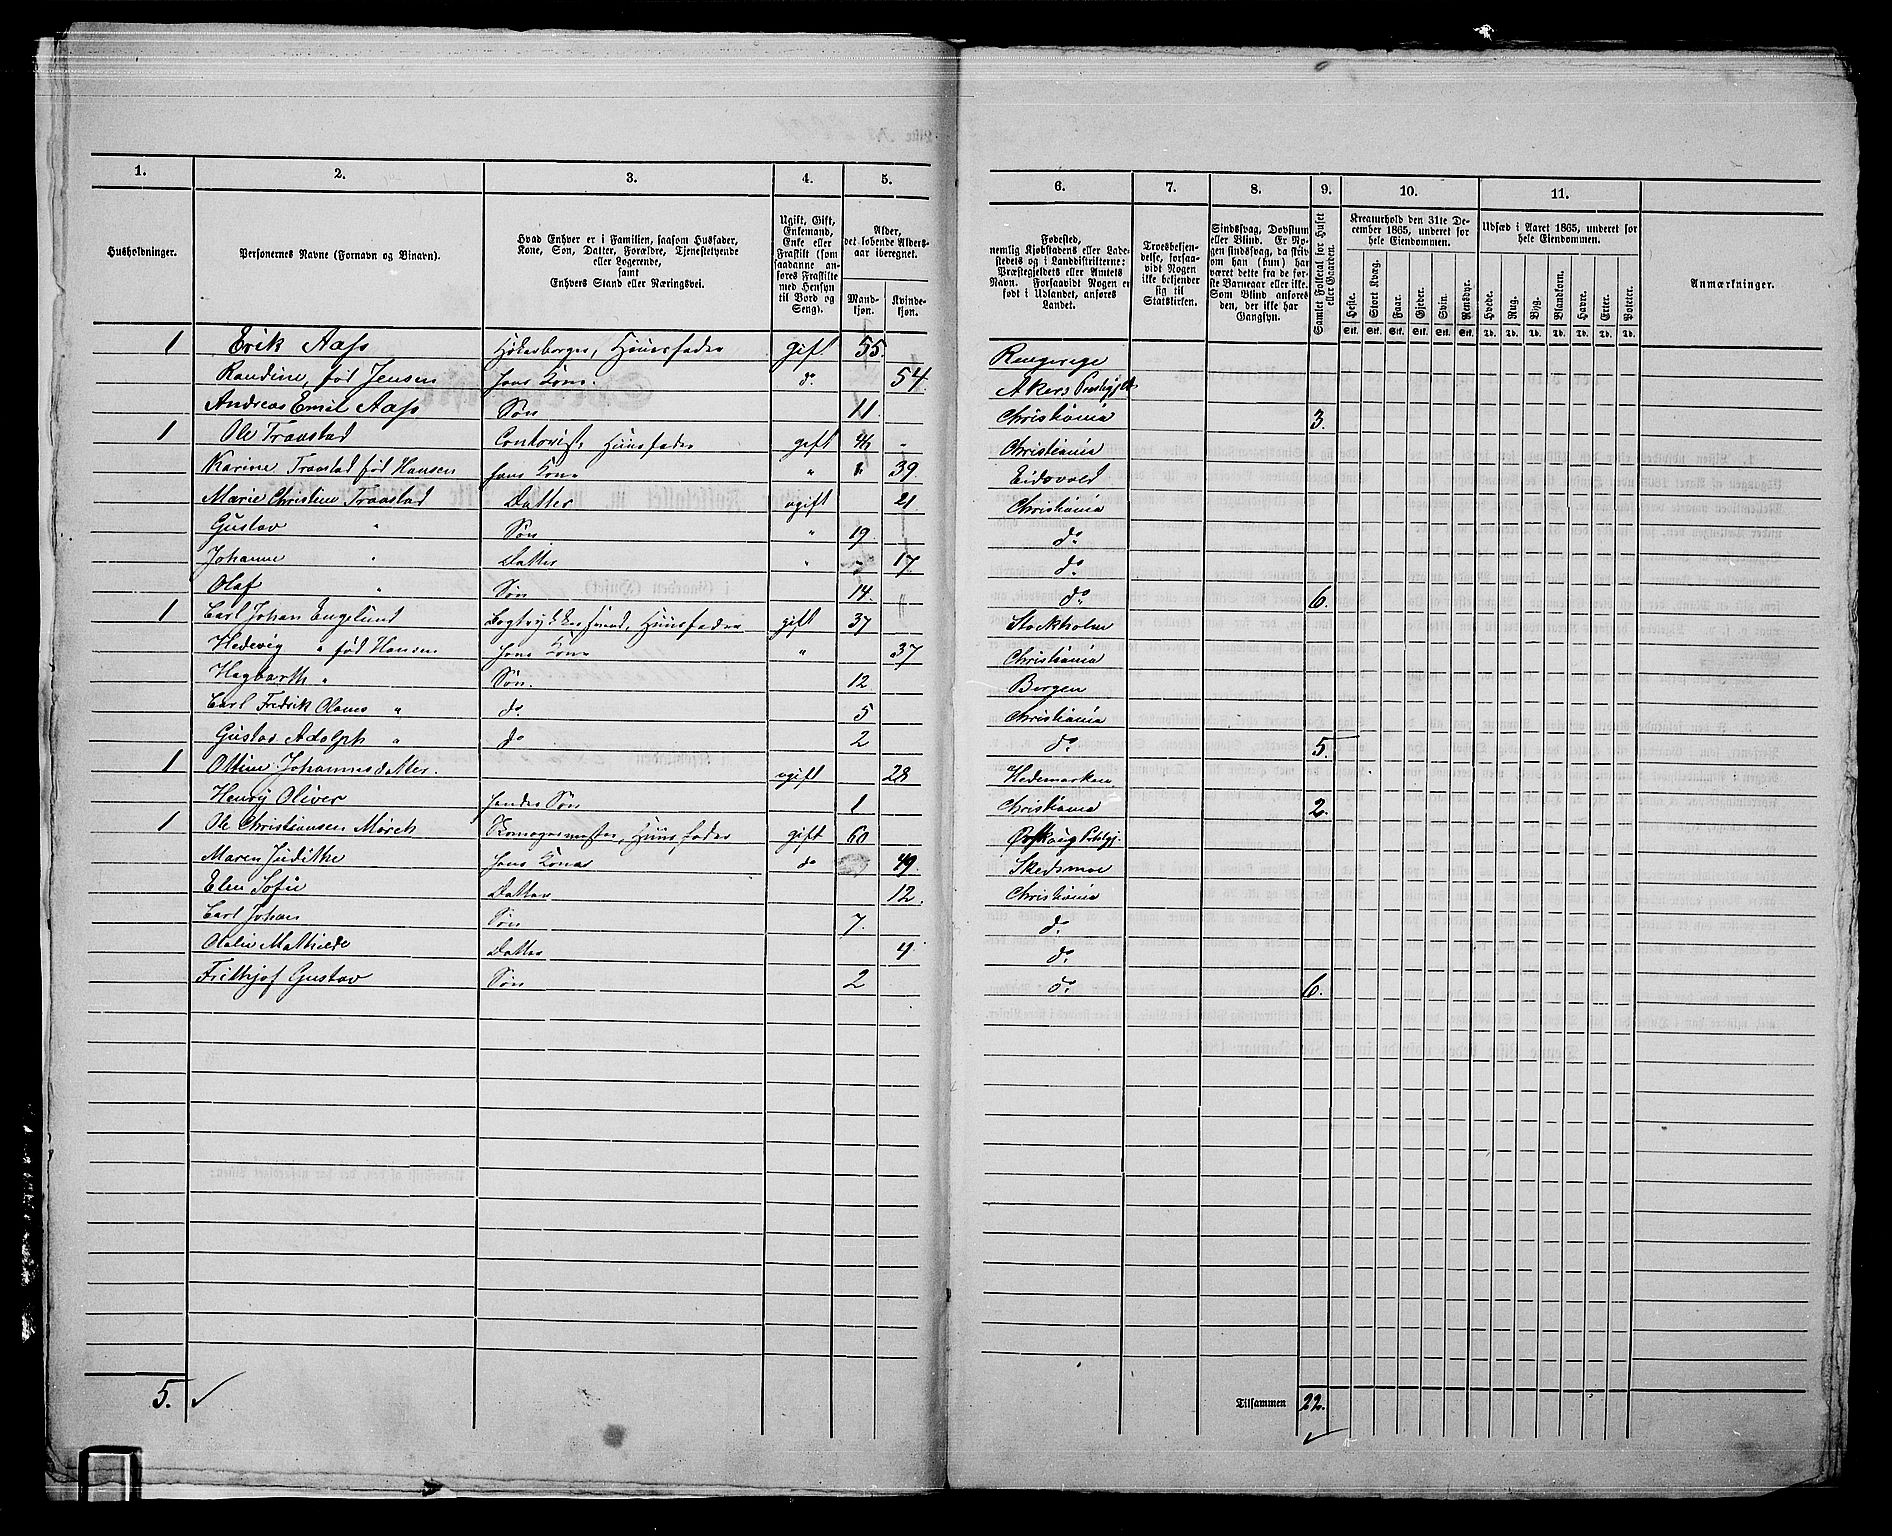 1. 2. 3. 4. 5. 6. 7. 8. 9. 10. 11.
Husholdninger.
Personernes Navne (Fornavn og Binavn).
Hvad Enhver er i Familien, saasom Husfader,
Kone, Søn, Datter, Forældre, Tjenestetyende
eller Logerende,
samt
Enhvers Stand eller Næringsvei.
Ugift, Gift,
Enkemand,
Enke eller
Fraskilt (som
saadanne an-
føres Fraskilte
med Hensyn
til Bord og
Seng).
Alder,
det løbende Alders-
aar iberegnet.
Mand-
kjøn.
Kvinde-
kjøn.
Fødested,
nemlig Kjøbstadens eller Lade-
stedets og i Landdistrikterne:
Præstegjeldets eller Amtets
Navn. Forsaavidt Nogen er
født i Udlandet, anføres
Landet.
Troesbekjen-
delse, forsaa-
vidt Nogen
ikke bekjender
sig til
Statskirken.
Sindssvag, Døvstum
eller Blind. Er No-
gen sindssvag, da skriv
om han (hun) har
været dette fra de før-
ste Barneaar eller ikke.
Som Blind anføres
den, der ikke har
Gangsyn.
Samlet Folketal for Huset
eller Gaarden.
Kreaturhold den 31te De-
cember 1865, underet for
hele Eiendommen.
Heste. Stort Kvæg. Faar. Gjeder. Svin. Rensdyr.
Stk. Stk. Stk. Stk. Stk. Stk.
Udsæd i Aaret 1865, underet for
hele Eiendommen.
Hvede. Rug. Byg. Blandkorn. Havre. Erter. Poteter.
Td. Td. Td. Td. Td. Td. Td.
Anmærkninger.
1 Erik Aass Huusfader gift 55. Ringerige
Randine, født Jensen hans Kone. do 54 Akers
Andreas Emil Aass Søn 11 Christiania 3.
1 Ole Traastad Contorist, Huusfader gift 46 " Christiania
Karine Traastad født Hansen hans Kone " " 39. Eidsvold
Marie Christine Traastad Datter ugift 21 Christiania
Gustav " Søn " 19 do
Johanne " Datter " " 17. do
Olaf " Søn 14. do 6.
1 Carl Johan Englund Bogtrykkersvend, Huusfader gift 37 Stockholm
Hedevig " født Hansen hans Kone " 37 Christiania
Hagbarth " Søn. 12 Bergen
Carl Fredrik Olaus " do. 5 Christiania
Gustav Adolph " do 2 do. 5.
1 Ottine Johannesdatter. ugift 28 Hedemarken
Henry Oliver hendes Søn 1 Christiania 2.
1 Ole Christiansen Mørch Huusfader gift 60 Ørskoug
Maren Judithe hans Kone do 49. Skedsmoe
Elen Sofie Datter 12. Christiania
Carl Johan Søn 7. do
Mathilde Datter 4 do
Frithjof Gustav Søn 2 do 6.
5.
Tilsammen 22.